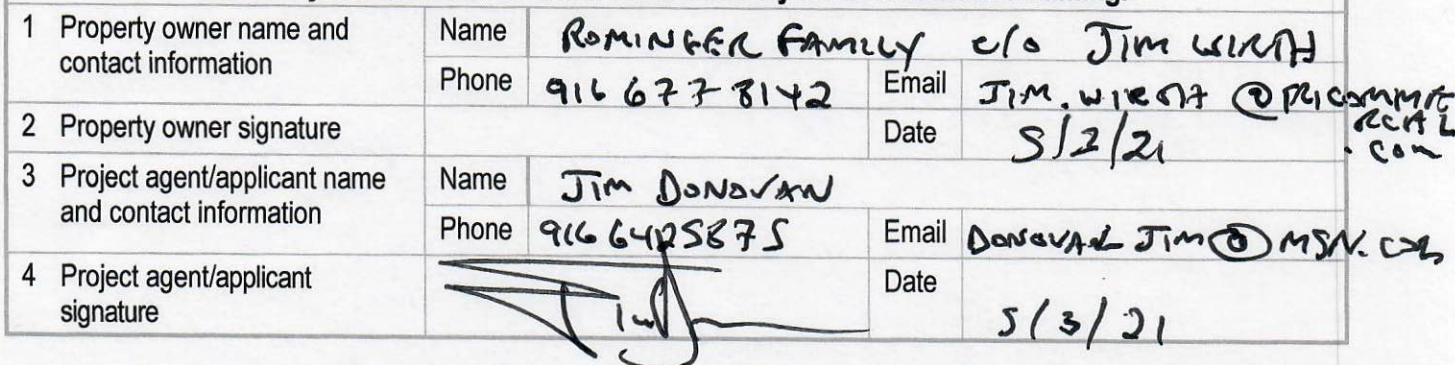 1 Property owner name and contact information Name ROMINGER FAMILY c/o JIM WIRTH
Phone 916 677 8142 Email JIM.WIRTH @PRICOMMERCIAL.COM
2 Property owner signature Date 5/2/21
3 Project agent/applicant name and contact information Name JIM DONOVAN
Phone 916 6425875 Email DONOVAN JIM@MSN.COM
4 Project agent/applicant signature Date 5/3/21